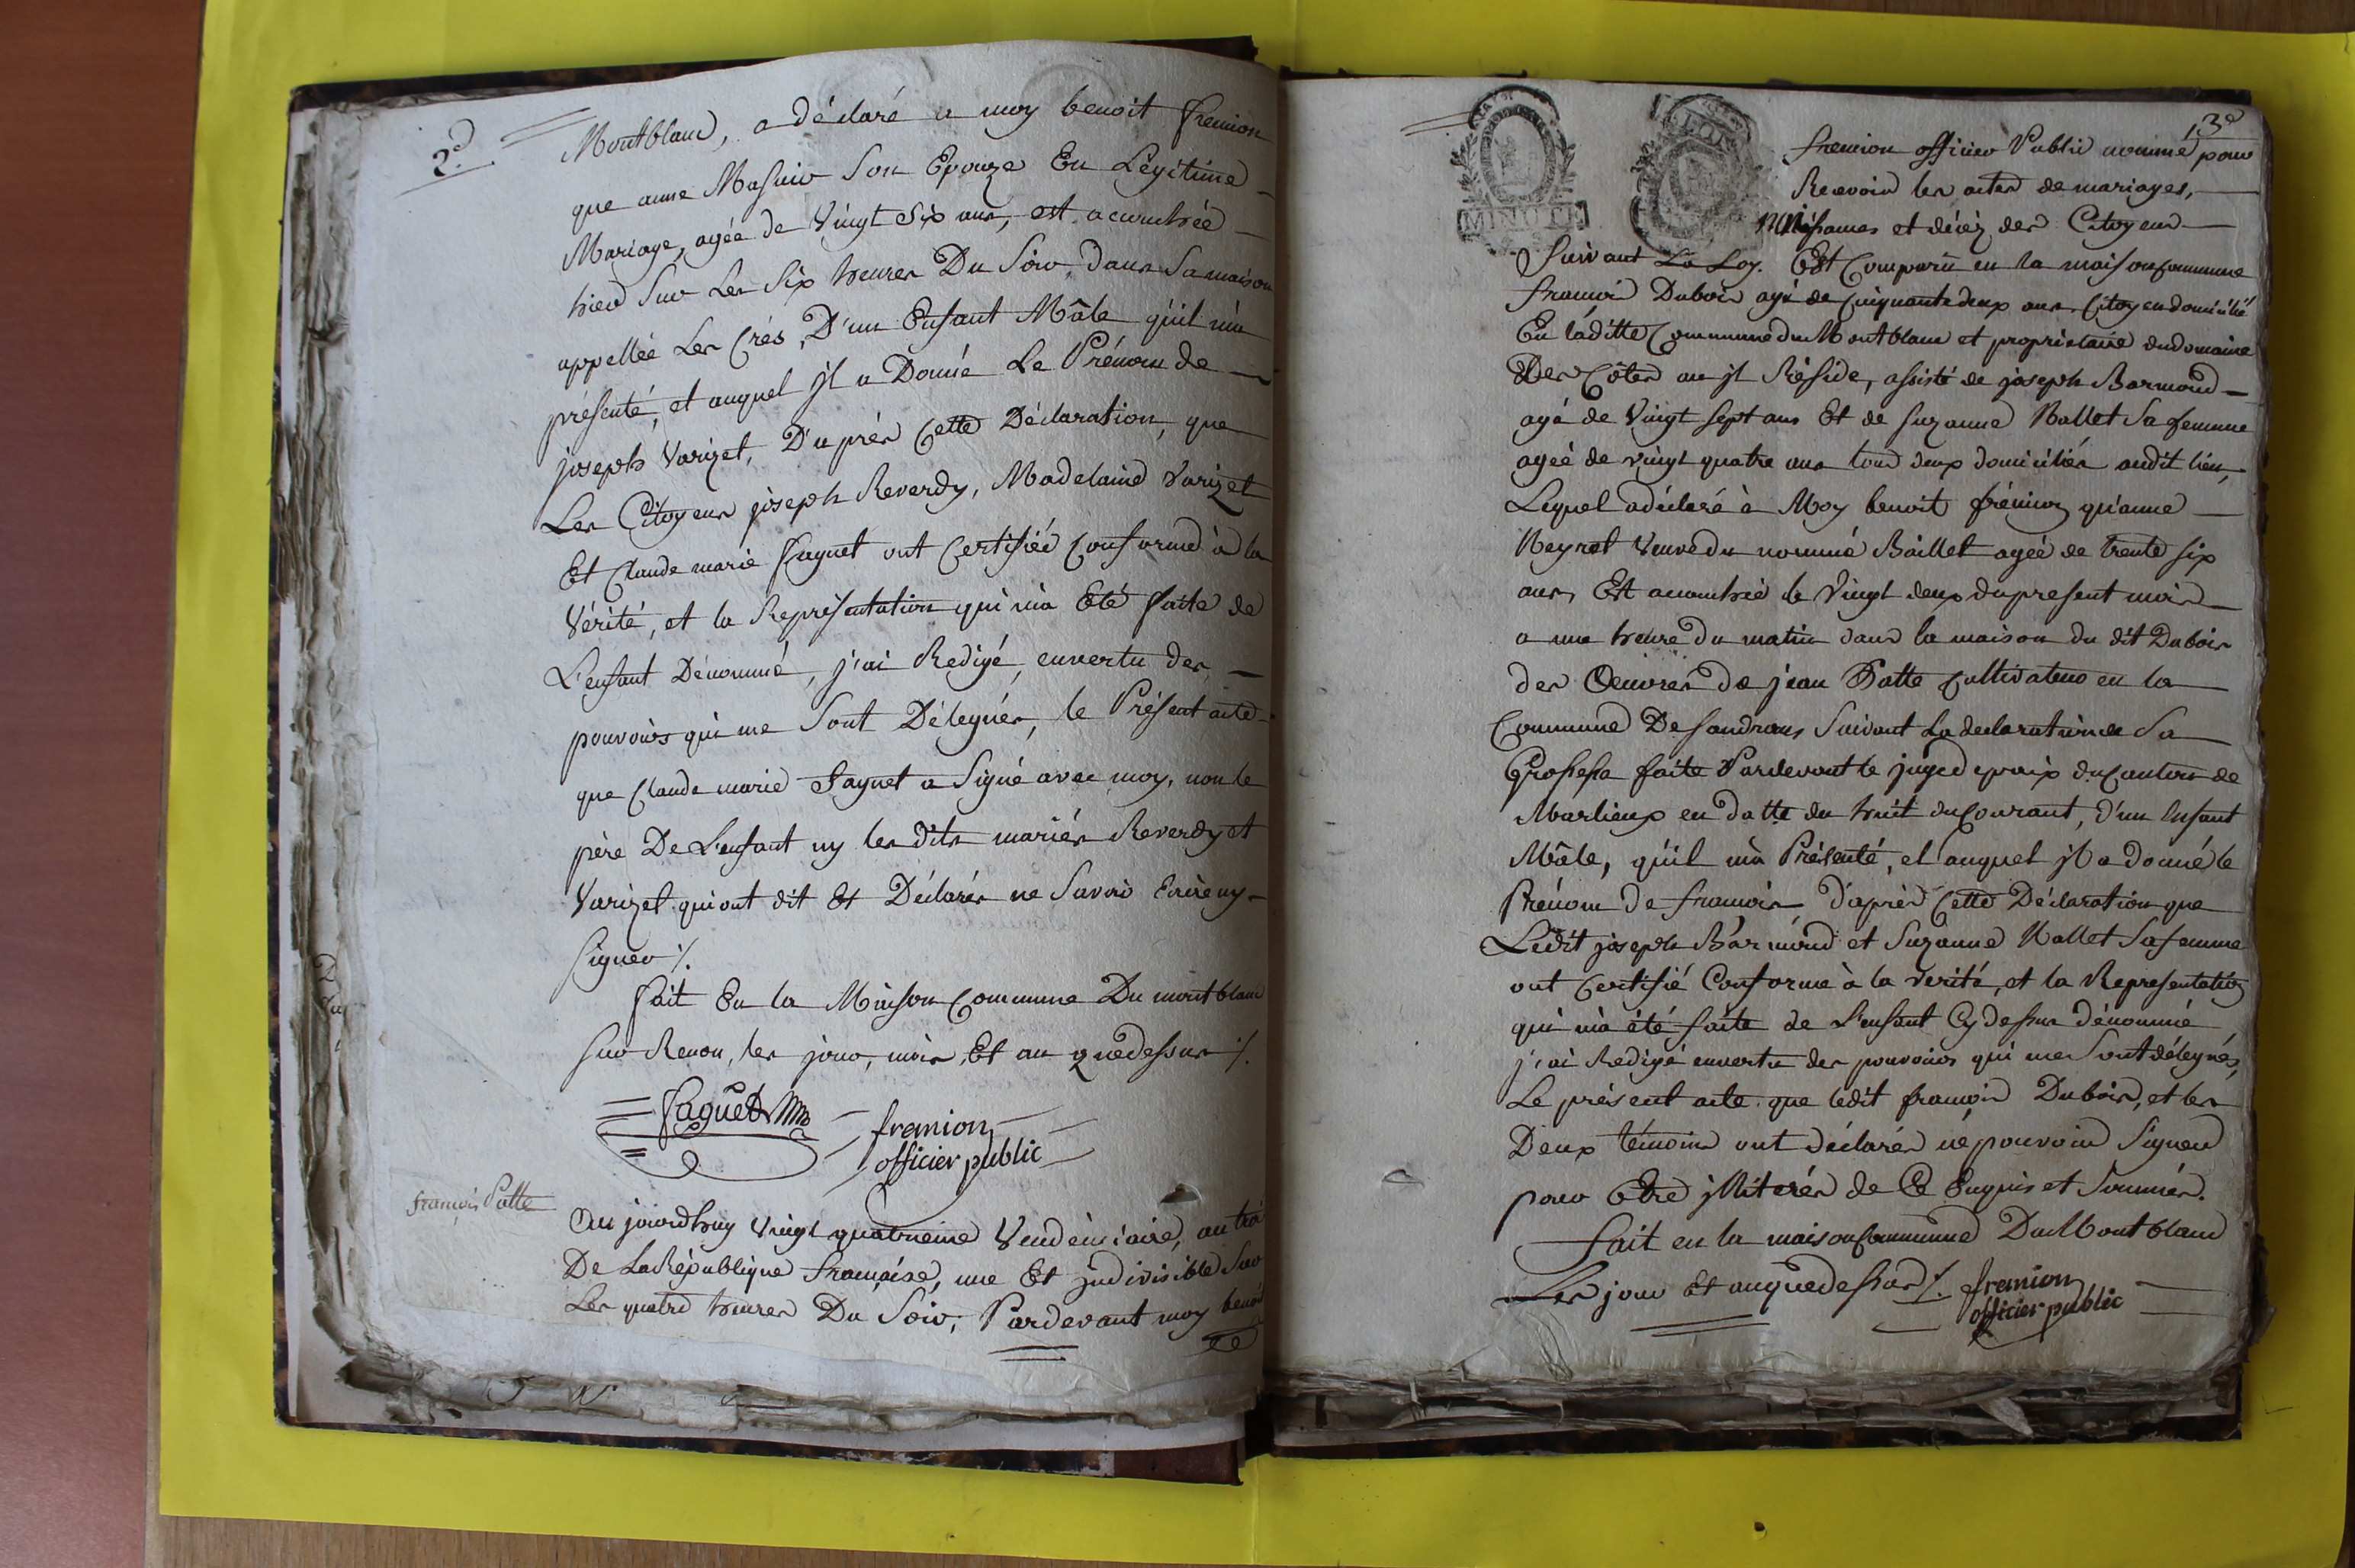 2.d
Montbland, a déclaré a moy benoit fremion
que anne Masuir Son Epouze En Légitime
Mariage, agée de Vingt Six ans, est acouchée
hier Sur Les Six heures Du Soir, dans Sa maison
appellée Les Crés, D'un Enfant Mâle qu'il m'a
présenté, et auquel jl a Donné Le Prénom de
joseph Varizet, D'après Cette Déclaration, que
Les Citoyens joseph Reverdy, Madelaine Varizet
Et Claude marie Faguet ont Certifiée Conforme à la
Vérité, et la Représentation qui m'a Eté faite de
L'enfant Dénommé, j'ai Redigé, envertu des
pouvoirs qui me Sont Délegués, le Présent acte
que Claude marie Faguet a Signé avec moy, non le
père De L'enfant ny les dits mariés Reverdy et
Varizet qui ont dit Et Déclarés ne Savoir Ecrire ny
Signer ./.
fait En la Maison Commune Du montbland
Sur Renon, les jour, mois, Et an quedessus ./.
Faguet
fremion
officier public
françois Patte
Au jourd'huy Vingt quatrieme Vendémiaire, an troi
De La République française, une Et jndivisible Sur
Les quatre heures Du Soir, Pardevant moy benoit
13e
fremion officier Public nommé pour
Recevoir les actes de mariages,
Naissances et décéz des Citoyens
MINUTE
Suivant La Loy. Est Comparu en la maison Commune
françois Dubois agé de Cinquante deux ans, Citoyen domicilié
En laditte Commune du Montbland et proprietaire du domaine
Des Côtes ou jl Réside, assisté de joseph Barmond
agé de Vingt Sept ans Et de Suzanne Nallet Sa femme
ageé de vingt quatre ans tous deux domiciliés audit lieu,
Lequel a déclaré à Moy benoit frémion qu'anne
Neyret Veuve du nommé Baillet ageé de trente six
ans, Est acouchée le Vingt deux du present mois
a une heure du matin dans la maison du dit Dubois
des Oeuvres de jean Patte Cultivateur en la
Commune De Sandrans Suivant La declaration de Sa
Grossesse faite Pardevant le juge de paix du Canton de
Marlieux en datte du huit du Courant, d'un Enfant
Mâle, qu'il m'a Présenté, et auquel jl a donné le
Prénom de françois d'après Cette Déclaration que
Ledit joseph Barmond et Suzanne Nallet Sa femme
ont Certifié Conforme à la verité, et la Representation
qui m'a été faite de L'enfant Cy dessus dénommé
j'ai Redigé envertu des pouvoirs qui me Sont délegués,
Le présent acte que ledit françois Dubois, et les
Deux témoins ont déclarés ne pouvoir Signer
pour Etre jlliterés de Ce Enquis et Sommés.
fait en la maison Commune Du Montbland
Les jour Et an quedessus ./. fremion
officier public